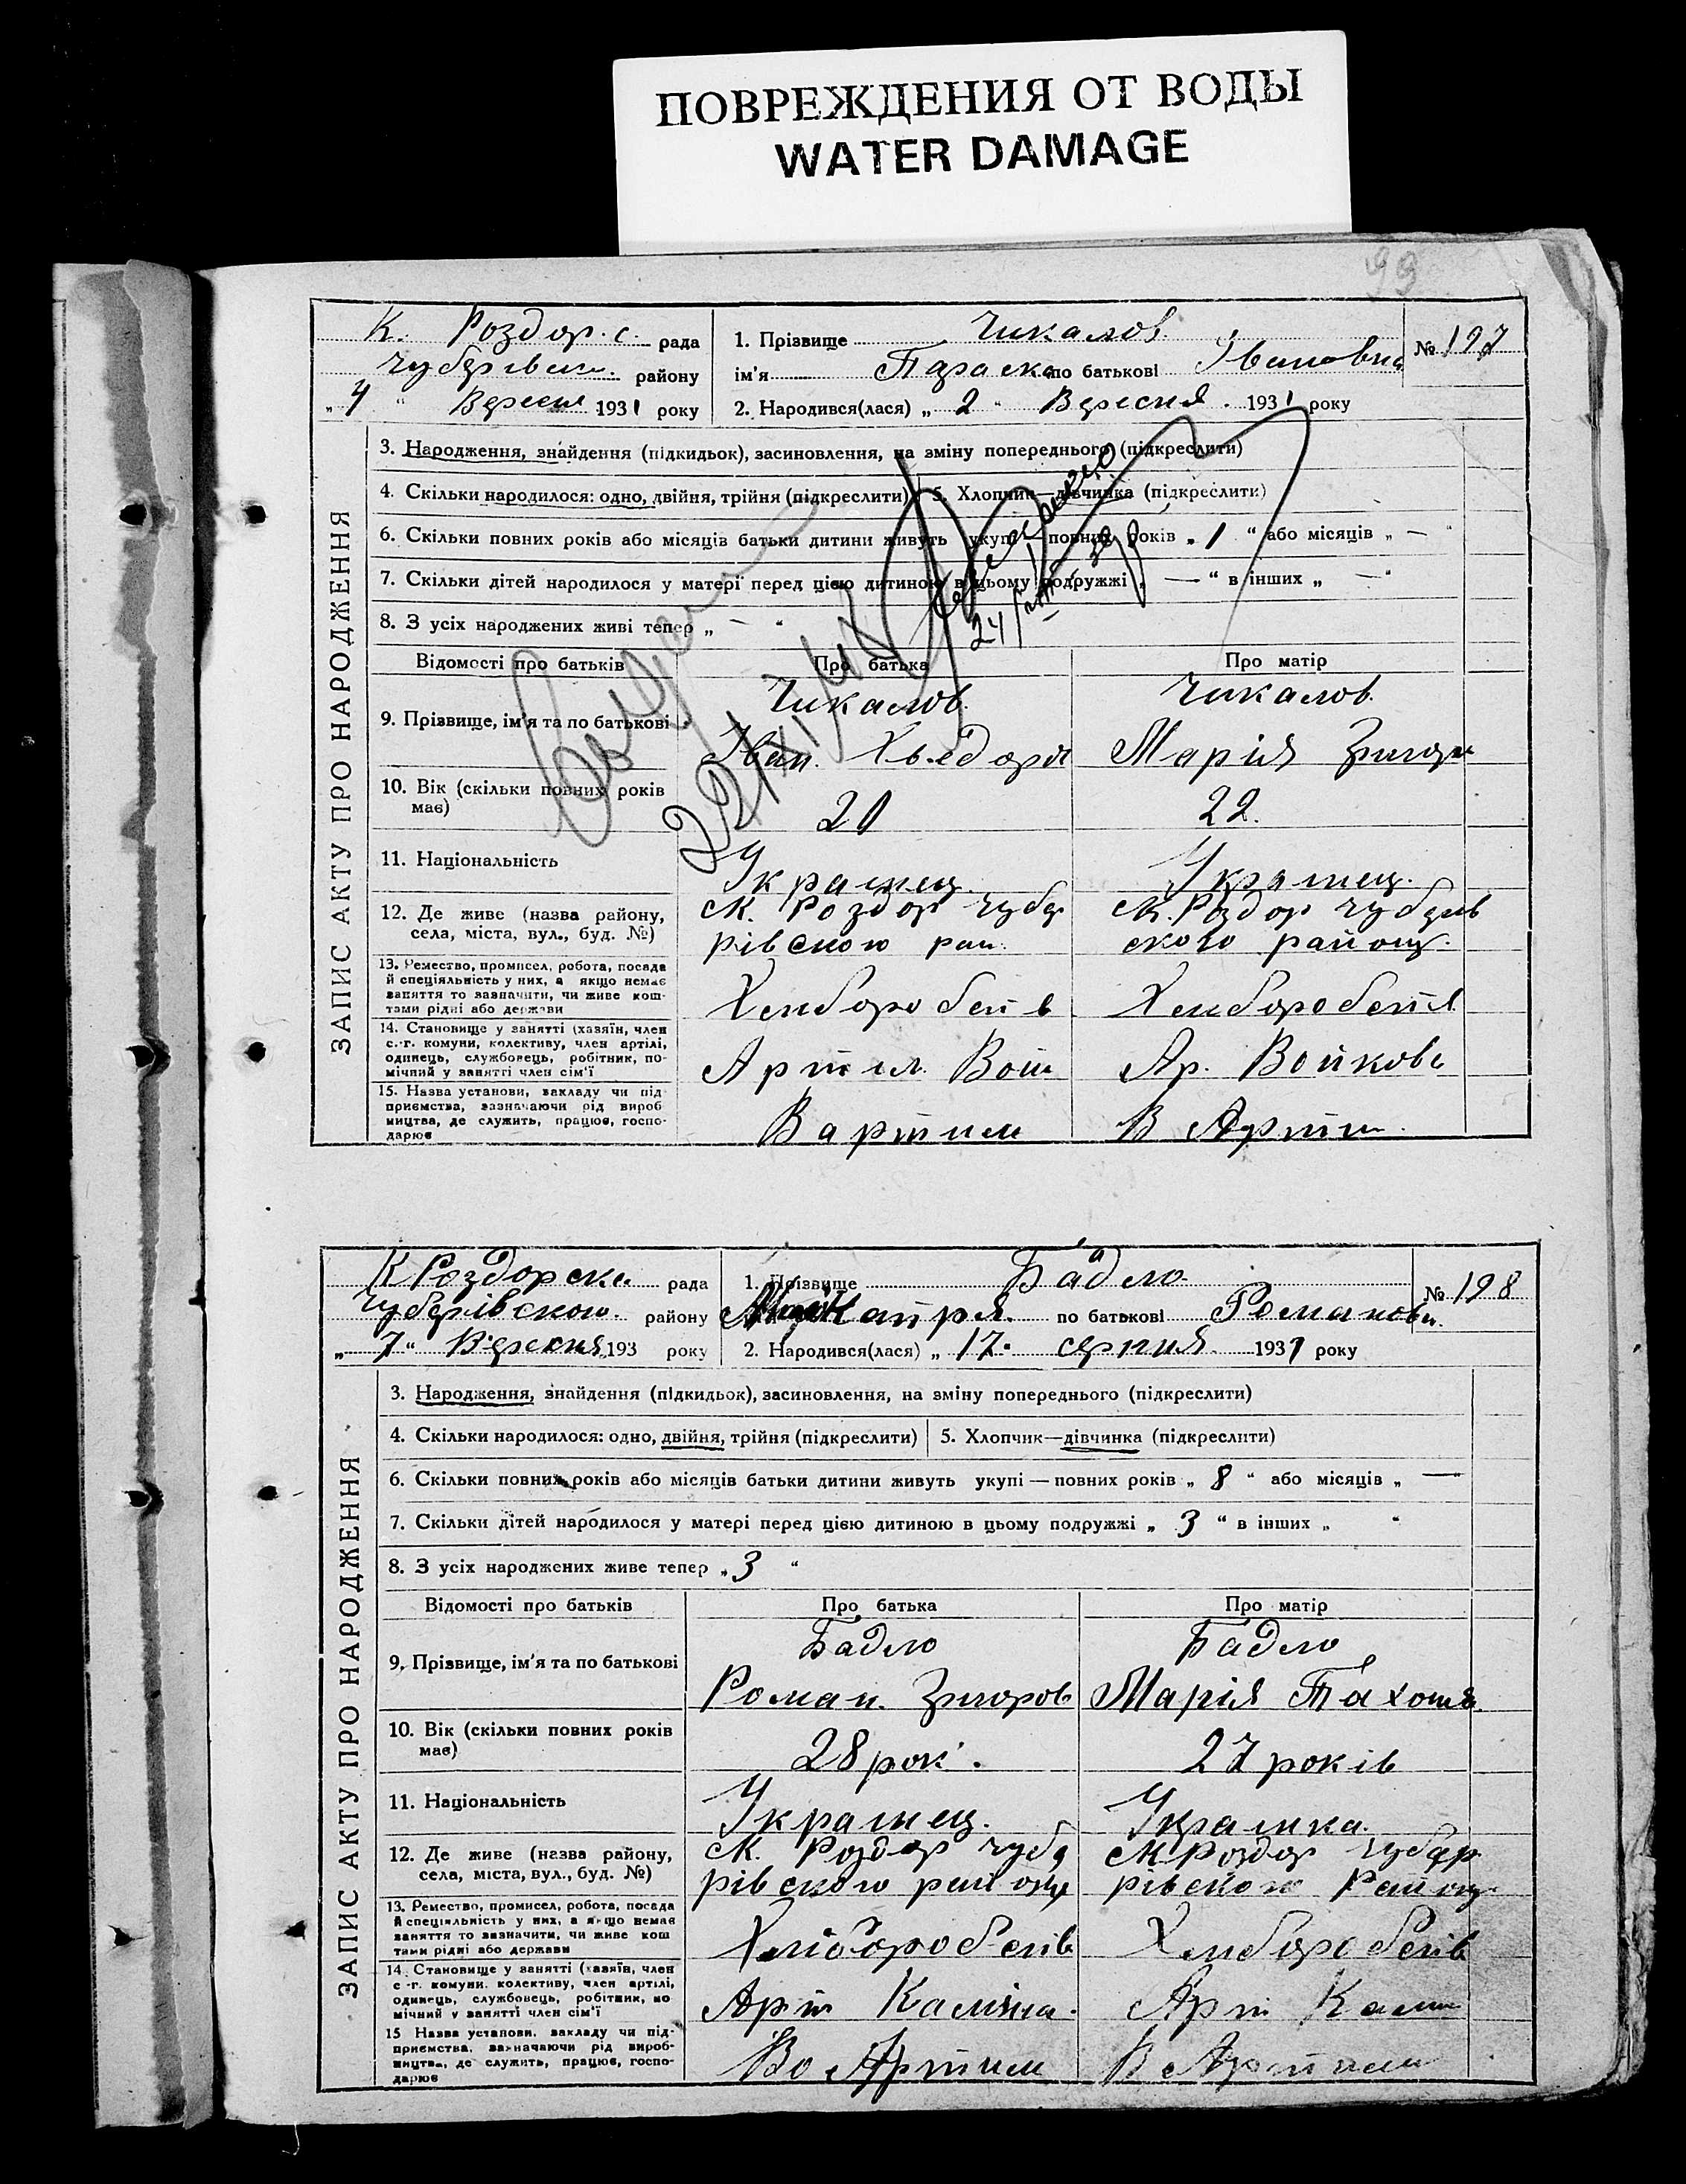 ПОВРЕЖДЕНИЯ ОТ ВОДЫ
WATER DAMAGE
99
ЗАПИС АКТУ ПРО НАРОДЖЕННЯ
К. Роздор. с. рада
Чубарівськ. району
„4“ Вересня 1931 року
1. Прізвище Чикалов.
ім'я Параска по батькові Івановна
№ 197
2. Народився(лася) „2“ Вересня. 1931 року
3. Народження, знайдення (підкидьок), засиновлення, на зміну попереднього (підкреслити)
4. Скільки народилося: одно, двійня, трійня (підкреслити) 5. Хлопчик—дівчинка (підкреслити)
6. Скільки повних років або місяців батьки дитини живуть укупі—повних років „1“ або місяців „—“
7. Скільки дітей народилося у матері перед цією дитиною в цьому подружжі „—“ в інших „—“
8. З усіх народжених живі тепер „—“
Відомості про батьків Про батька Про матір
9. Прізвище, ім'я та по батькові
Чикалов. Чикалов.
Іван. Марія
10. Вік (скільки повних років має)
20 22.
11. Національність
Українец. Українец.
12. Де живе (назва району, села, міста, вул., буд. №)
К. Роздор Чубарівского рай. К. Роздор Чубарівского району.
13. Ремество, промисел, робота, посада й спеціяльність у них, а якщо немає заняття то зазначити, чи живе коштами рідні або держави
14. Становище у занятті (хазяїн, член с.-г. комуни, колективу, член артілі, одинець, службовець, робітник, помічний у занятті член сім'ї
Ар. Войкова
15. Назва установи, закладу чи підприємства, зазначаючи рід виробництва, де служить, працює, господарює
Вартили В Артил.
22/XI
24/VIII
ЗАПИС АКТУ ПРО НАРОДЖЕННЯ
К Роздорска рада
Чубарівского. району
„7“ Вересня 193 року
1. Прізвище Бадло
Катря. по батькові Романовн.
№ 198
2. Народився(лася) „17.“ серпня 1931 року
3. Народження, знайдення (підкидьок), засиновлення, на зміну попереднього (підкреслити)
4. Скільки народилося: одно, двійня, трійня (підкреслити) 5. Хлопчик—дівчинка (підкреслити)
6. Скільки повних років або місяців батьки дитини живуть укупі—повних років „8“ або місяців „—“
7. Скільки дітей народилося у матері перед цією дитиною в цьому подружжі „3“ в інших „ “
8. З усіх народжених живе тепер „3“
Відомості про батьків Про батька Про матір
9. Прізвище, ім'я та по батькові
Бадло Бадло
Роман. Григоров Марія
10. Вік (скільки повних років має)
28 рокі. 27 років
11. Національність
Українец. Українка.
12. Де живе (назва району, села, міста, вул., буд. №)
К. Роздор Чубарівского району К Роздор Чубарівского Району
13. Ремество, промисел, робота, посада й спеціяльність у них, а якщо немає заняття то зазначити, чи живе коштами рідні або держави
14. Становище у занятті (хазяїн, член с.-г. комуни, колективу, член артілі, одинець, службовець, робітник, помічний у занятті член сім'ї
Арт Калініна. Арт Калін
15 Назва установи, закладу чи підприємства, зазначаючи рід виробництва, де служить, працює, господарює
Во Артили В Артили